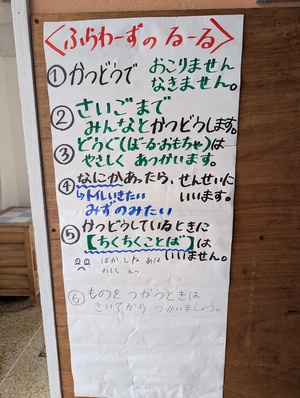 <ふらわーずの るーる>
①かつどうで おこりません
なきません。
②さいごまで
みんなとかつどうします。
③どうぐ(ぼーる・おもちゃ)は
やさしく あつかいます。
④なにかあったら、せんせいに
いいます。
↳トイレいきたい
みずのみたい
⑤かつどうしているときに
【ちくちくことば】は
いいません。
⑥ものを つかうときは
きいてから つかいましょう。